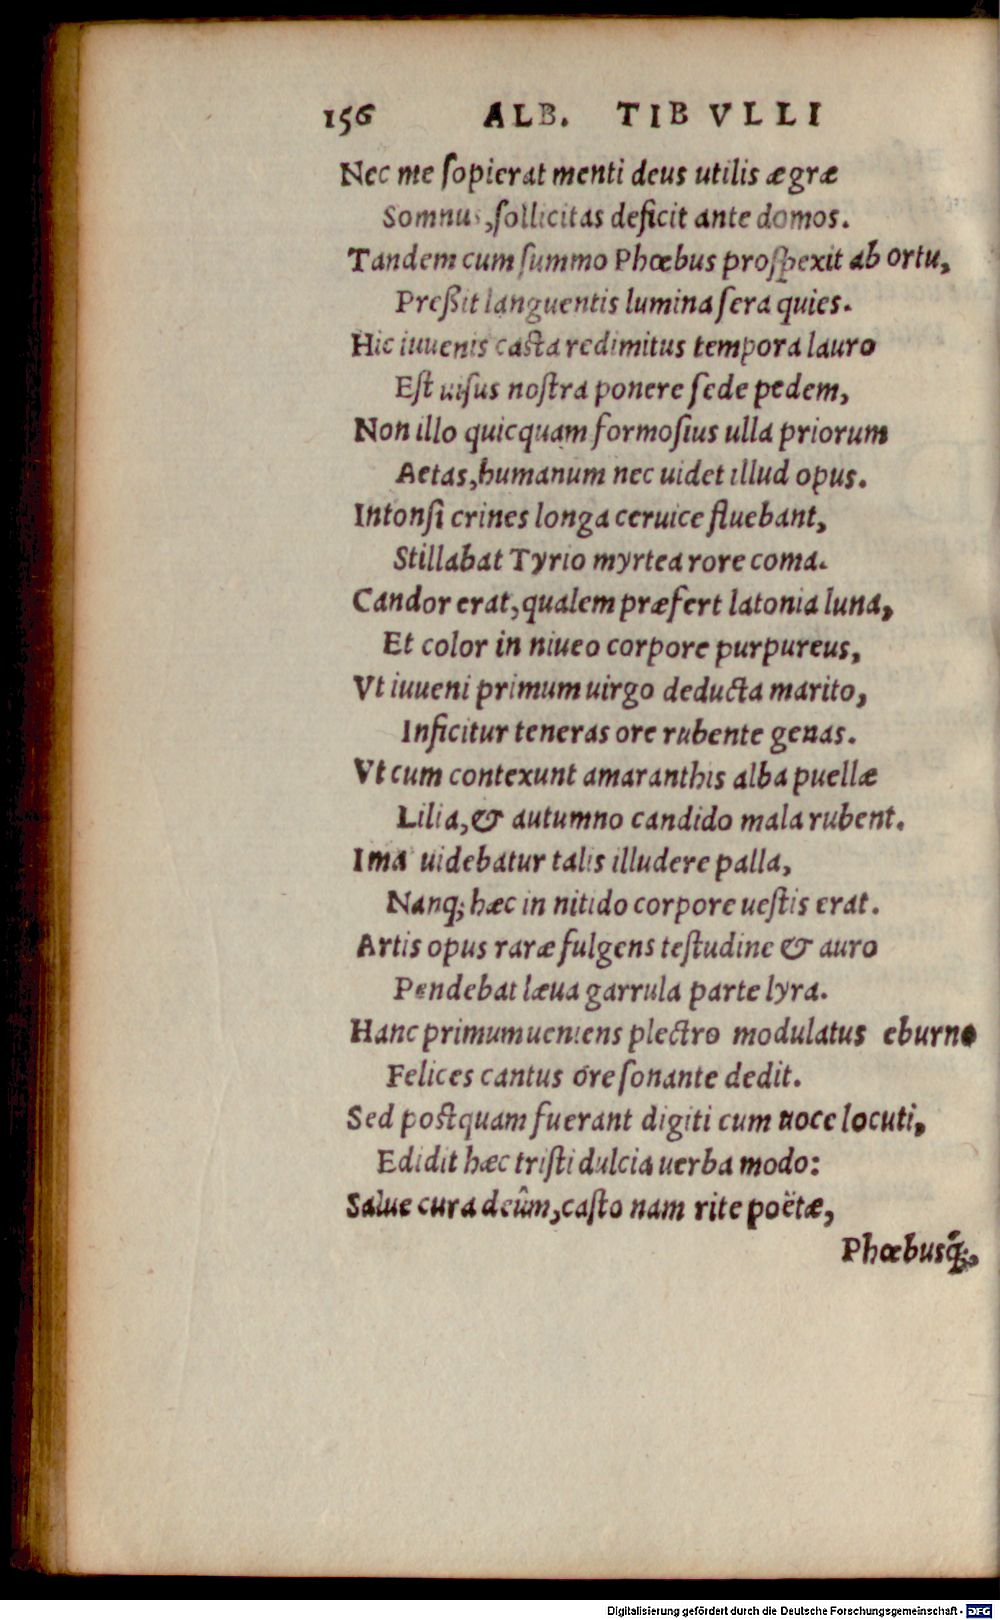 156 ALB. TIBVLLI
Nec me ſopierat menti deus utilis ægræ
Somnus,ſollicitas deficit ante domos.
Tandem cum ſummo Phœbus proſpexit ab ortu,
Preßit languentis lumina ſera quies.
Hic iuuenis caſta redimitus tempora lauro
Eſt uiſus noſtra ponere ſede pedem,
Non illo quicquam formoſius ulla priorum
Aetas,humanum nec uidet illud opus.
Intonſi crines longa ceruice fluebant,
Stillabat Tyrio myrtea rore coma.
Candor erat,qualem præfert latonia luna,
Et color in niueo corpore purpureus,
Vt iuueni primum uirgo deducta marito,
Inficitur teneras ore rubente genas.
Vt cum contexunt amaranthis alba puellæ
Lilia,& autumno candido mala rubent.
Ima uidebatur talis illudere palla,
Nanq; hæc in nitido corpore ueſtis erat.
Artis opus raræ fulgens teſtudine & auro
Pendebat læua garrula parte lyra.
Hanc primum ueniens plectro modulatus eburno
Felices cantus ore ſonante dedit.
Sed poſtquam fuerant digiti cum uoce locuti,
Edidit hæc triſti dulcia uerba modo:
Salue cura deûm,caſto nam rite poëtæ,
Phœbusq́;,
Digitalisierung gefördert durch die Deutsche Forschungsgemeinschaft - DFG